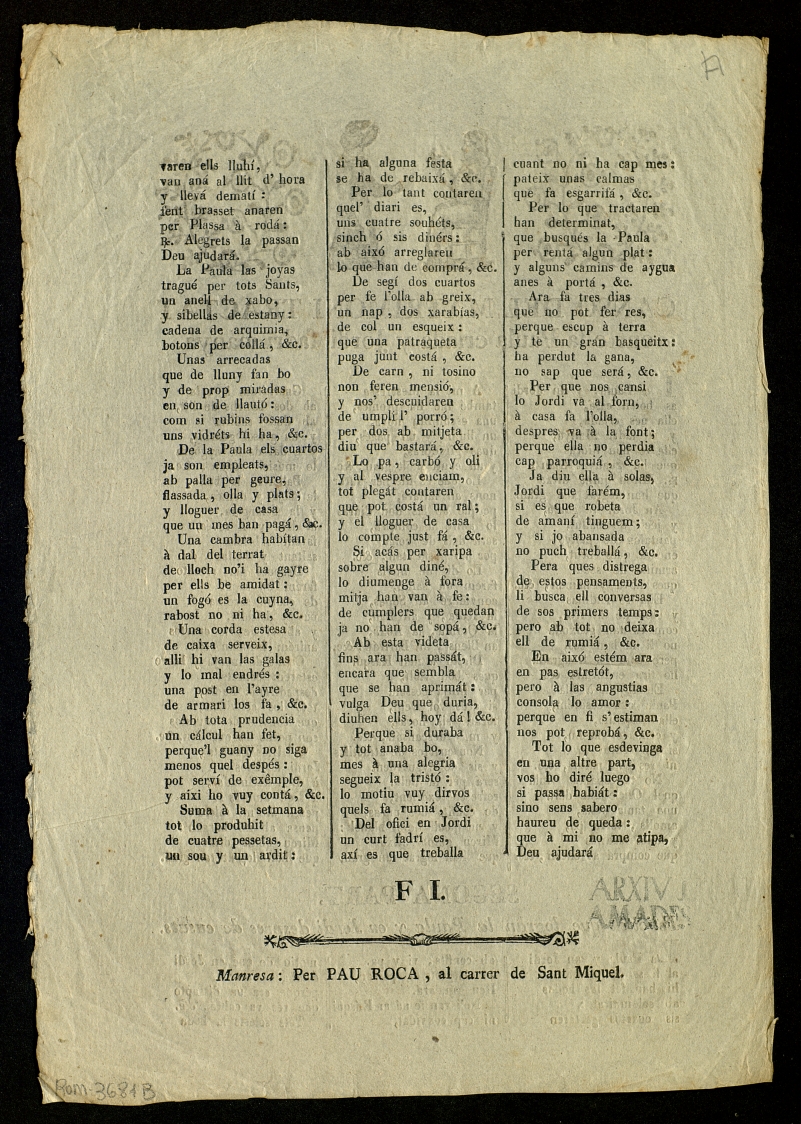 varen ells lluhí,
van aná al llit d' hora
y llevá dematí :
fent brasset anaren
per Plassa à rodá :
℞. Alegrets la passan
Deu ajudará.
La Paula las joyas
tragué per tots Sants,
un anell de xabo,
y sibellas de estany :
cadena de arquimia,
botons per collá, &c.
Unas arrecadas
que de lluny fan bo
y de prop miradas
en son de llautó :
com si rubins fossan
uns vidréts hi ha, &c.
De la Paula els cuartos
ja son empleats,
ab palla per geure,
flassada, olla y plats ;
y lloguer de casa
que un mes han pagá, &c.
Una cambra habítan
à dal del terrat
de lloch no'i ha gayre
per ells be amidat :
un fogó es la cuyna,
rabost no ni ha, &c.
Una corda estesa
de caixa serveix,
alli hi van las galas
y lo mal endrés :
una post en l'ayre
de armari los fa, &c.
Ab tota prudencia
un cálcul han fet,
perque'l guany no siga
menos quel despés :
pot serví de exêmple,
y aixi ho vuy contá, &c.
Suma à la setmana
tot lo produhit
de cuatre pessetas,
un sou y un ardit :
si ha alguna festa
se ha de rebaixá, &c.
Per lo tant contaren
quel' diari es,
uns cuatre souhéts,
sinch ó sis dinérs :
ab aixó arreglaren
lo que han de comprá, &c.
De segí dos cuartos
per fe l'olla ab greix,
un nap, dos xarabias,
de col un esqueix :
que una patraqueta
puga junt costá, &c.
De carn, ni tosino
non feren mensió,
y nos' descuidaren
de umplí l' porró ;
per dos ab mitjeta
diu que bastará, &c.
Lo pa, carbó y oli
y al vespre enciam,
tot plegát contaren
que pot costá un ral ;
y el lloguer de casa
lo compte just fá, &c.
Si acás per xaripa
sobre algun diné,
lo diumenge à fora
mitja han van à fe :
de cumplers que quedan
ja no han de sopá, &c.
Ab esta videta
fins ara han passát,
encara que sembla
que se han aprimát :
vulga Deu que duria,
diuhen ells, hoy dá! &c.
Perque si duraba
y tot anaba bo,
mes à una alegria
segueix la tristó :
lo motiu vuy dirvos
quels fa rumiá, &c.
Del ofici en Jordi
un curt fadrí es,
axí es que treballa
cuant no ni ha cap mes :
pateix unas calmas
que fa esgarrifá, &c.
Per lo que tractaren
han determinat,
que busqués la Paula
per rentá algun plat :
y alguns camins de aygua
anes à portá, &c.
Ara fa tres dias
que no pot fer res,
perque escup à terra
y te un gran basqueitx :
ha perdut la gana,
no sap que será, &c.
Per que nos cansi
lo Jordi va al forn,
à casa fa l'olla,
despres va à la font ;
perque ella no perdia
cap parroquiá, &c.
Ja diu ella à solas,
Jordi que farém,
si es que robeta
de amaní tinguem ;
y si jo abansada
no puch treballá, &c.
Pera ques distrega
de estos pensaments,
li busca ell conversas
de sos primers temps :
pero ab tot no deixa
ell de rumiá, &c.
En aixó estém ara
en pas estretót,
pero à las angustias
consola lo amor :
perque en fi s' estiman
nos pot reprobá, &c.
Tot lo que esdevinga
en una altre part,
vos ho diré luego
si passa habiát :
sino sens sabero
haureu de queda :
que à mi no me atipa,
Deu ajudará
F I.
ARXIV
AMADES
Manresa : Per PAU ROCA, al carrer de Sant Miquel.
Rom-3681B